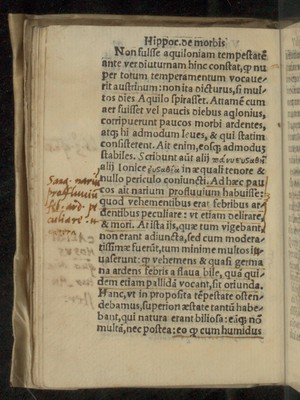 Hippoc. de morbis
Non fuisse aquiloniam tempestatē
ante ver diuturnam hinc constat, ꝙ nu
per totum temperamentum vocaue-
rit austrinum: non ita dicturus, si mul-
tos dies Aquilo spirasset. Attamē cum
aer fuisset vel paucis diebus aqlonius,
corripuerunt paucos morbi ardentes,
atqꝫ hi admodum leues, & qui statim
consisterent. Ait enim, eosqꝫ admodūꝫ
stabiles. Scribunt aūt alij
alij Ionice in æquali tenore &
nullo periculo coniuncti. Ad hæc pau
cos ait narium profluuium habuisse:
quod vehementibus erat febribus ar-
dentibus peculiare: vt etiam delirare,
& mori. At ista ijs, quæ tum vigebant,
non erant adiuncta, sed cum modera-
tissimæ fuerūt, tum minime multos in-
uaserunt: ꝙ vehemens & quasi germa
na ardens febris a flaua bile, qua qui-
dem etiam pallidā vocant, sit oriunda.
Hanc, vt in proposita tēpestate osten-
debamus, superior æstate tantū habe-
bant, qui natura erant biliosa: eāqꝫ nō
multā, nec postea: eo ꝙ cum humidus
Sang. nariū
profluuium
feb. ard. pe
culiare